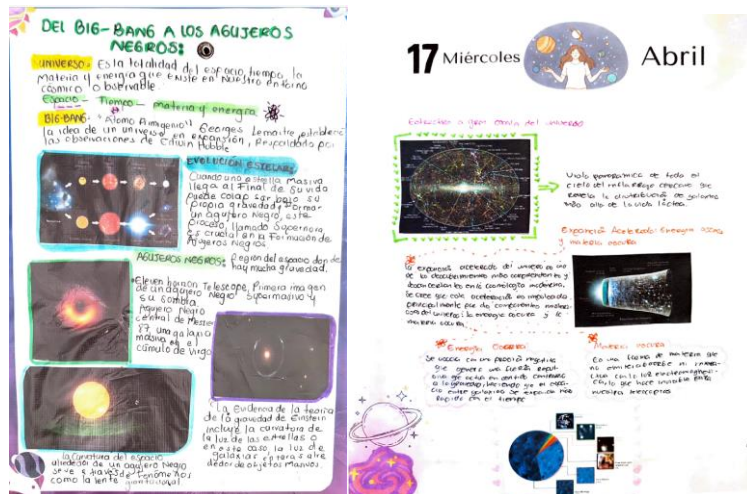 DEL BIG-BANG A LOS AGUJEROS
NEGROS:
UNIVERSO: Es la totalidad del espacio, tiempo, la
Materia y energia que existe en nuestro entorno
cósmico observable.
Espacio - Tiempo - materia y energia
BIG-BANG: "Átomo Primigenio" Georges Lemaitre, establece
la idea de un universo en expansión, Respaldado por
las observaciones de Edwin Hubble
EVOLUCION ESTELAR:
Cuando una estrella Masiva
llega al Final de su vida
puede colapsar bajo su
propia gravedad, Formando
un agujero Negro, este
proceso, llamado Supernova,
es crucial en la Formación de
Agujeros Negros.
AGUJEROS NEGROS: Región del espacio donde
hay mucha gravedad.
Horizon Telescope, Primera imagen
de un agujero Negro Supermasivo y
su sombra
Agujero Negro
central de Messier
87 una galaxia
masiva en el
cúmulo de Virgo
La Evidencia de la teoria
de la gravedad de Einstein
incluye la curvatura de
la luz de las estrellas o
en este caso, la luz de
galaxias enteras alre
dedor de objetos Masivos.
la curvatura del espacio
alrededor de un agujero Negro
se ve a través de Fenómenos
como la lente gravitacional
17 Miércoles Abril
Estructura a gran escala del universo
Vista panoramica de todo el
cielo del infrarrojo cercano que
revela la distribución de galaxias
más alla de la vía láctea.
Expansión Acelerada: Energia oscura
y materia oscura
la expansión acelerada del universo es uno
de los descubrimientos más sorprendentes y
desconcertantes en la cosmología moderna,
Se cree que esta aceleración es impulsada
principalmente por dos componentes
del universo: la energia oscura y la
materia oscura.
Energia Oscura
Se asocia con una presión negativa
que genera una fuerza
que actúa en sentido contrario
a la gravedad, haciendo que el espa
cio entre galaxias se expanda más
rápido con el tiempo
Materia oscura
Es una forma de materia que
no emite absorbe ni
con la luz electromagnetica
lo que hace invisible para
nuestros telescopios